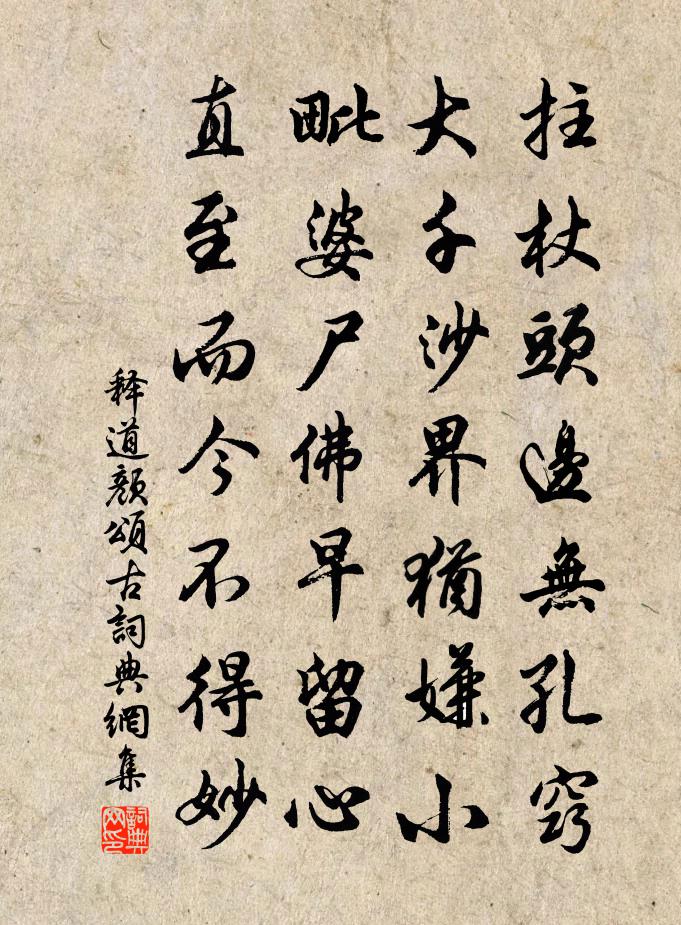 拄杖頭邊無孔竅
大千沙界猶嫌小
毗婆尸佛早留心
直至而今不得妙
释道顏頌古詞典網集
詞典网印